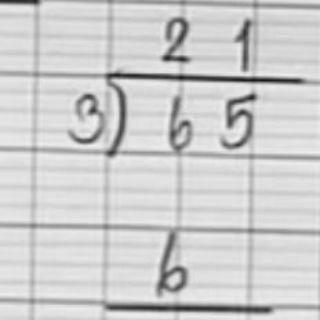 21
3)65
6